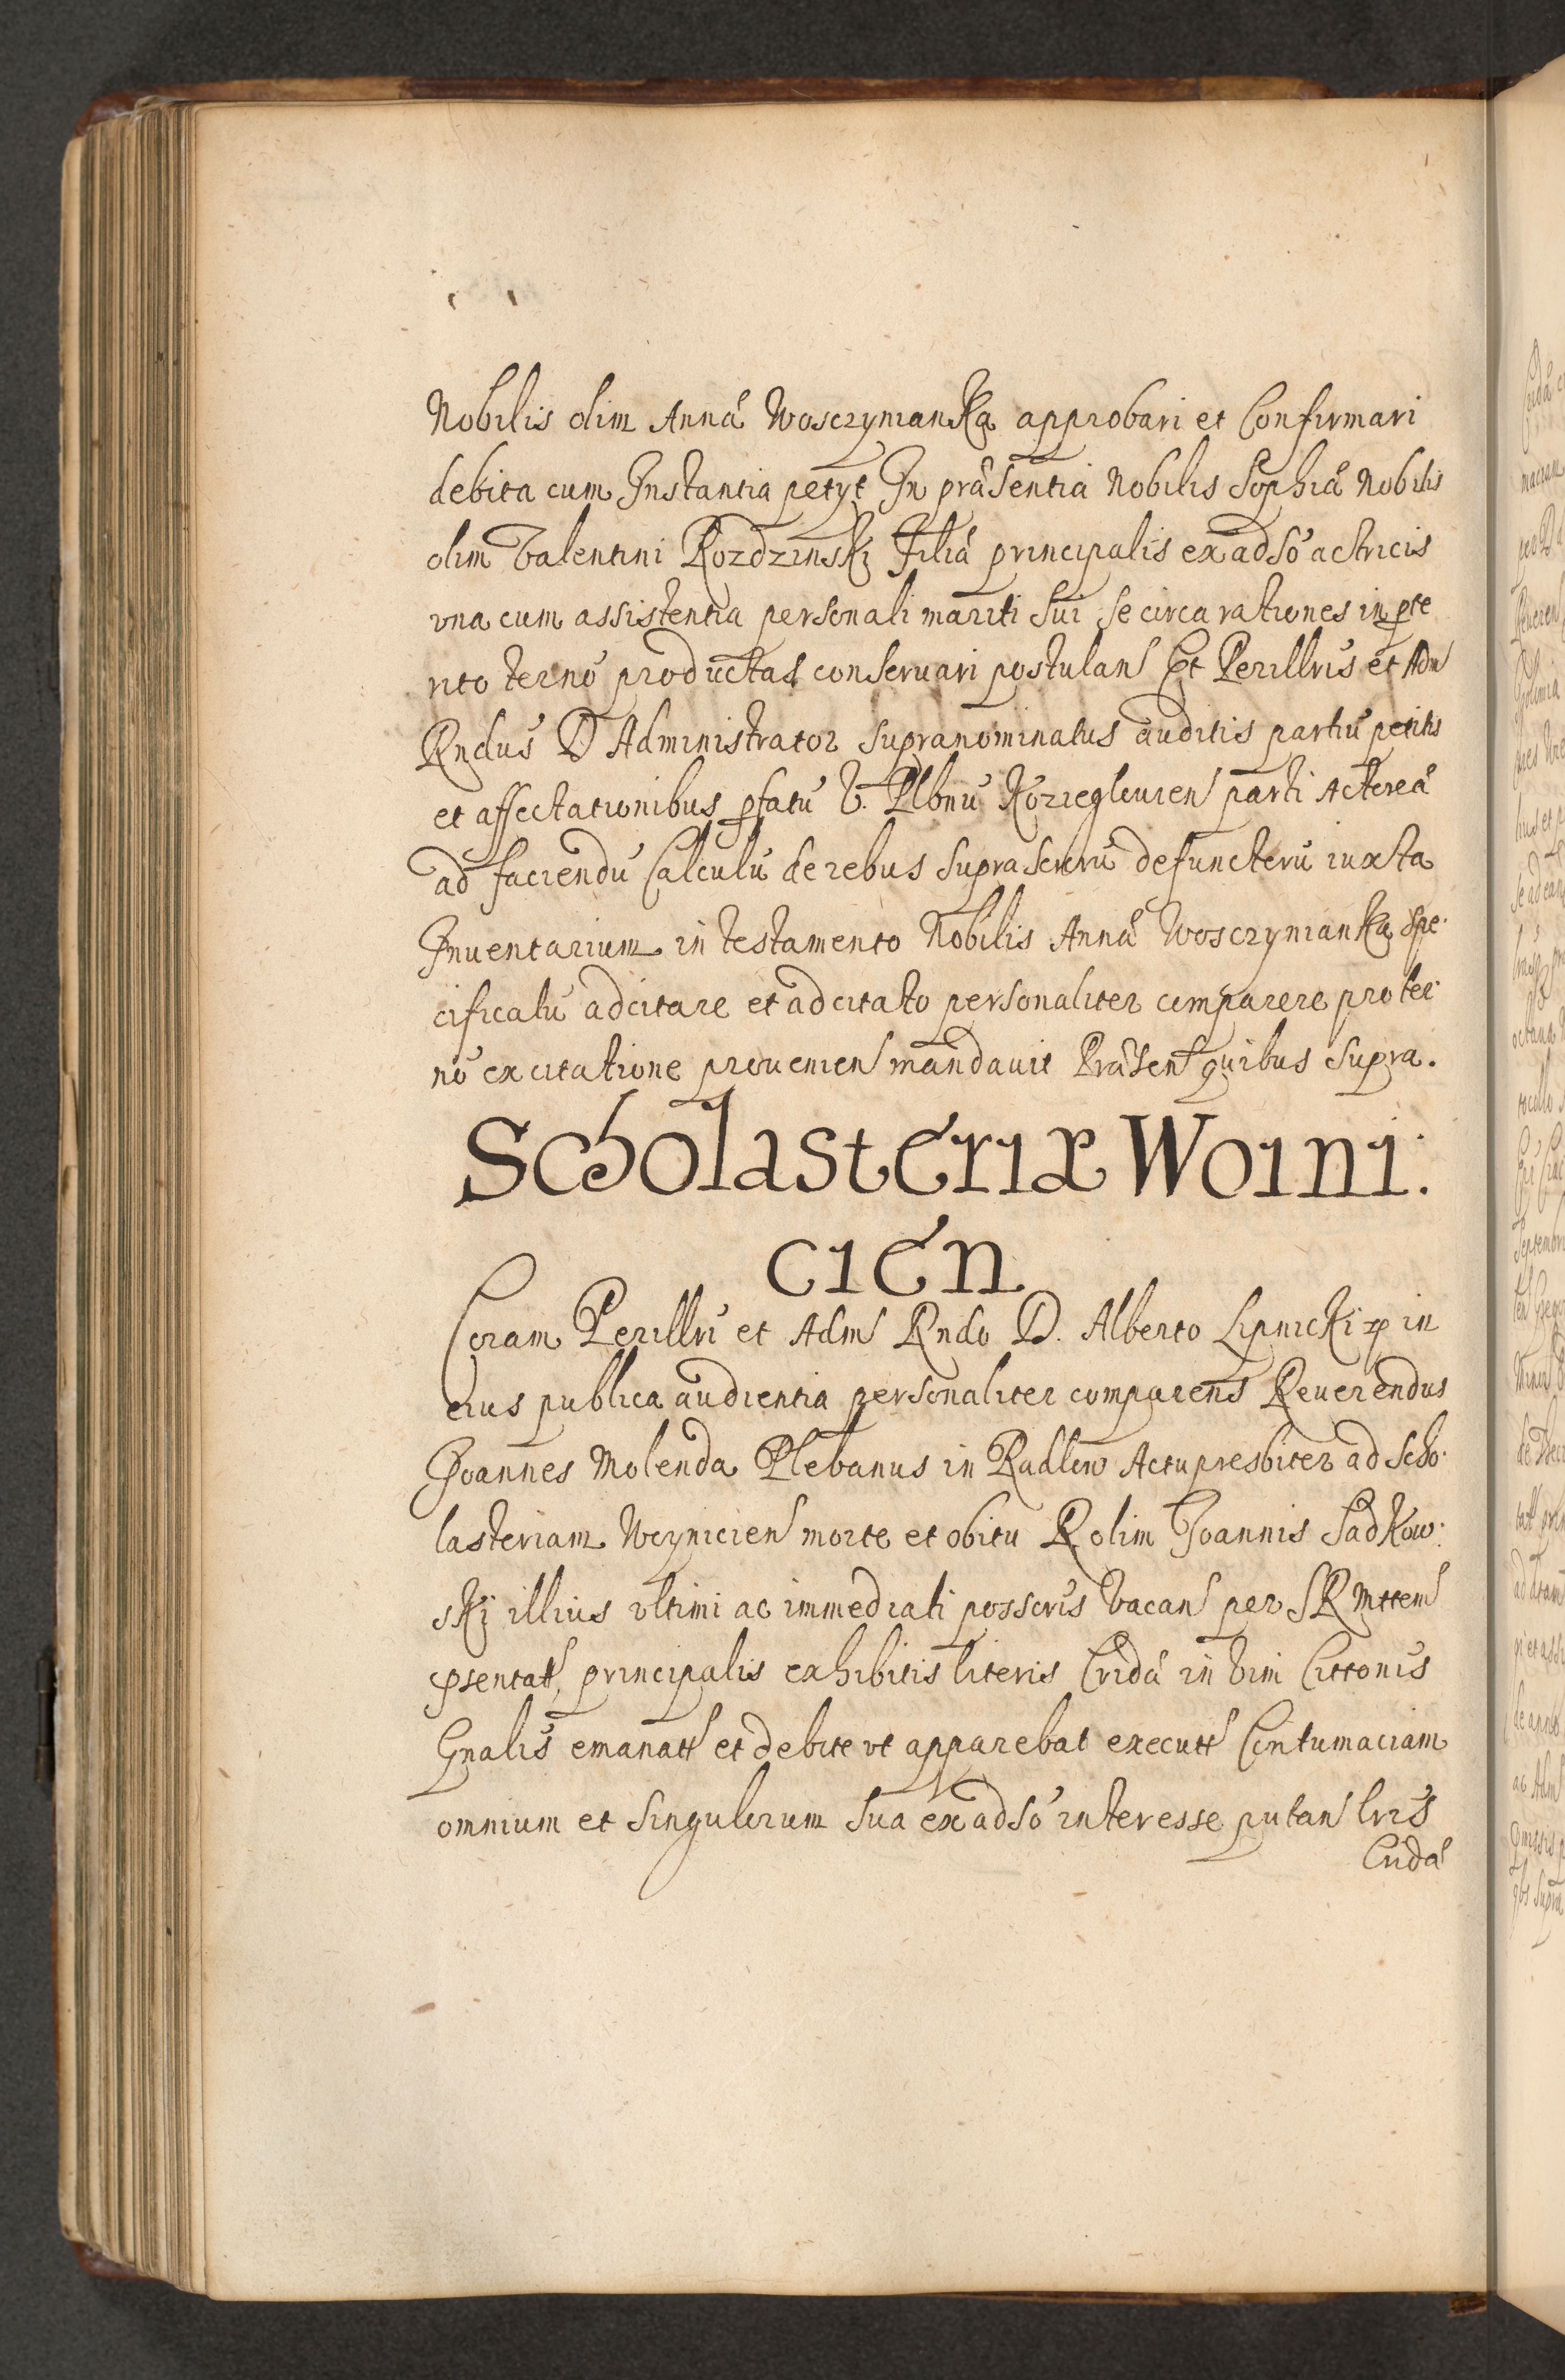 Nobilis olim Annæ Wosczynianka approbari et Confirmari
debita cum Instantia petÿt In præsentia Nobilis Sophiæ Nobilis
olim Valentini Rozdzinski Filiæ principalis ex adső actricis
vna cum assistentia personali mariti sui se circa rationes in
rito terno productas conseruari postulan Et Perillris et Adm
Rndus D Administrator supranominatus auditis partiū petitis
et affectationibus pfatū V. Plbnū Koziegleuien parti Actoreæ
ad faciendū Calculū de rebus defunctorū iuxta
Inuentarium in testamento Nobilis Annæ Wosczynianka spe
cificatū adcitare et adcitato personaliter comparere pro ter
no ex citatione prouenien mandauit Præsen quibus supra.
Scholasteriæ Woini.
cień
Coram Perillri et Adm Rndo D. Alberto Lipnicki in
eius publica audientia personaliter comparens Reuerendus
Joannes Molenda Plebanus in Radlow Actu presbiter ad Scho
lasteriam Woynicien morte et obitu R olim Joannis Sadkow
ski illius vltimi ac immediati possoris vacan per SR Mttem
psentatt, principalis exhibitis literis Cridæ in vim Cittonis
Gnalis emanatt et debite vt apparebat executt Contumaciam
omnium et singulorum sua ex adső interesse putan lris
Cridæ